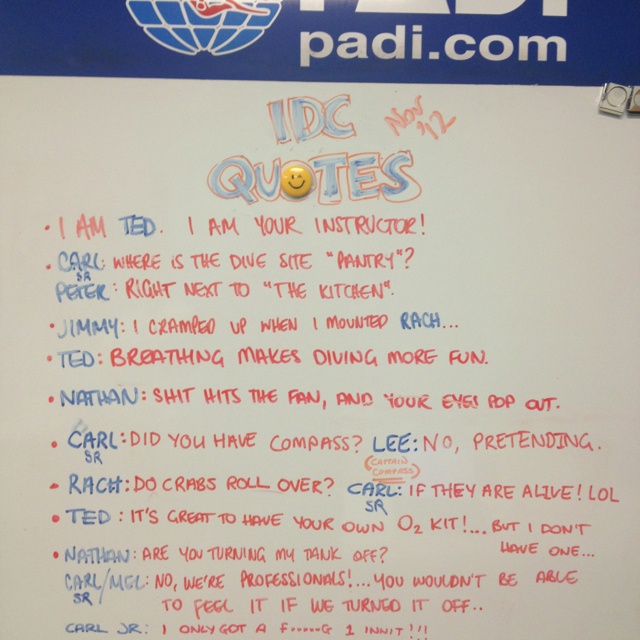 PADI
padi.com
IDC Nov '12
QUOTES
• I AM TED. I AM YOUR INSTRUCTOR!
• CARL SR: WHERE IS THE DIVE SITE "PANTRY"?
PETER: RIGHT NEXT TO "THE KITCHEN".
• JIMMY: I CRAMPED UP WHEN I MOUNTED RACH...
• TED: BREATHING MAKES DIVING MORE FUN.
• NATHAN: SHIT HITS THE FAN, AND YOUR EYES POP OUT.
• CARL SR: DID YOU HAVE COMPASS? LEE: NO, PRETENDING.
(CAPTAIN COMPASS)
• RACH: DO CRABS ROLL OVER? CARL SR: IF THEY ARE ALIVE! LOL
• TED: IT'S GREAT TO HAVE YOUR OWN O2 KIT!... BUT I DON'T
HAVE ONE...
• NATHAN: ARE YOU TURNING MY TANK OFF?
CARL SR/MEL: NO, WE'RE PROFESSIONALS!... YOU WOULDN'T BE ABLE
TO FEEL IT IF WE TURNED IT OFF..
CARL JR: I ONLY GOT A F-----G 1 INNIT!!!